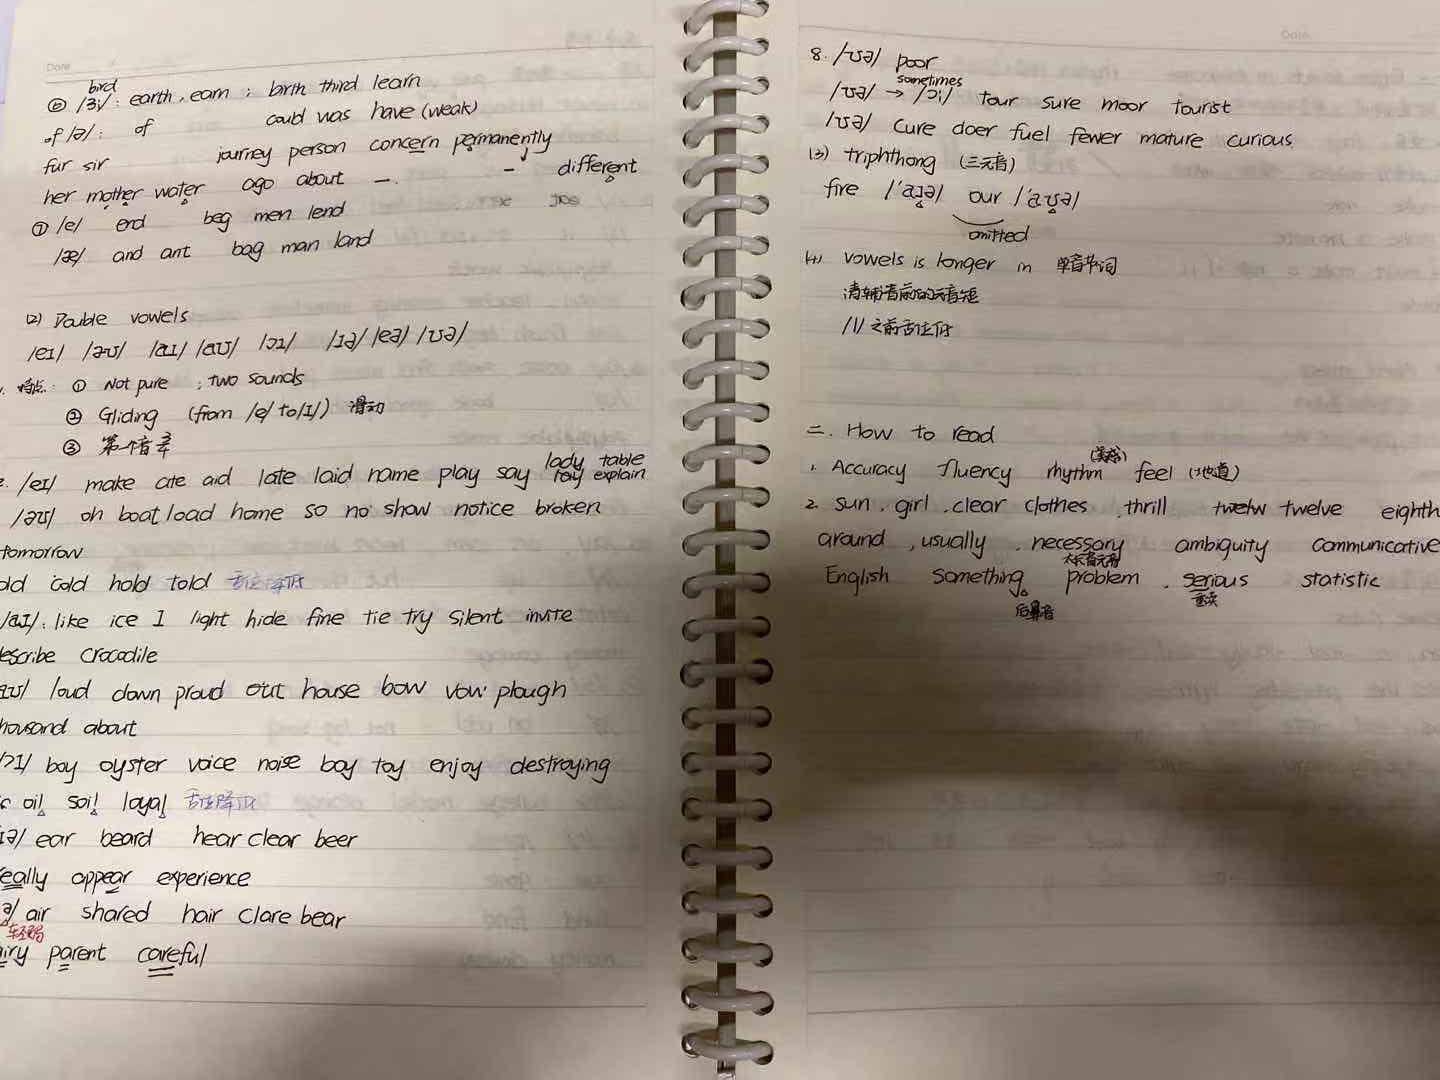 Date
bird
⑥ /ɜː/: earth, earn ; birth third learn
of /ə/: of could was have (weak)
fur sir journey person concern permanently
her mother water ago about — . – different
⑦ /e/ end beg men lend
/æ/ and ant bag man land
(2) Double vowels
/eɪ/ /əʊ/ /aɪ/ /aʊ/ /ɔɪ/ /ɪə/ /eə/ /ʊə/
特点: ① Not pure ; two sounds
② Gliding (from /e/ to /ɪ/) 滑动
③ 第一个音
lady table
2. /eɪ/ make ate aid late laid name play say explain
/əʊ/ oh boat load home so no show notice broken
tomorrow
old cold hold told 舌位降低
/aɪ/: like ice I light hide fine tie try silent invite
escribe crocodile
aʊ/ loud down proud out house bow vow plough
housand about
/ɔɪ/ boy oyster voice noise boy toy enjoy destroying
oil soil loyal 舌位降低
ɪə/ ear beard hear clear beer
eally appear experience
ə/ air shared hair clare bear
iry parent careful
Date
8. /ʊə/ poor
sometimes
/ʊə/ → /ɔː/ tour sure moor tourist
/ʊə/ cure doer fuel fewer mature curious
(3) triphthong (三元音)
fire /'aɪə/ our /'aʊə/
omitted
(4) vowels is longer in 单音节词
清辅音前的元音短
/l/ 之前舌位低
二. How to read
1. Accuracy fluency rhythm feel (地道)
2. sun . girl . clear clothes . thrill twelve eighth
around , usually . necessary ambiguity communicative
English something problem . serious statistic
后鼻音 重读